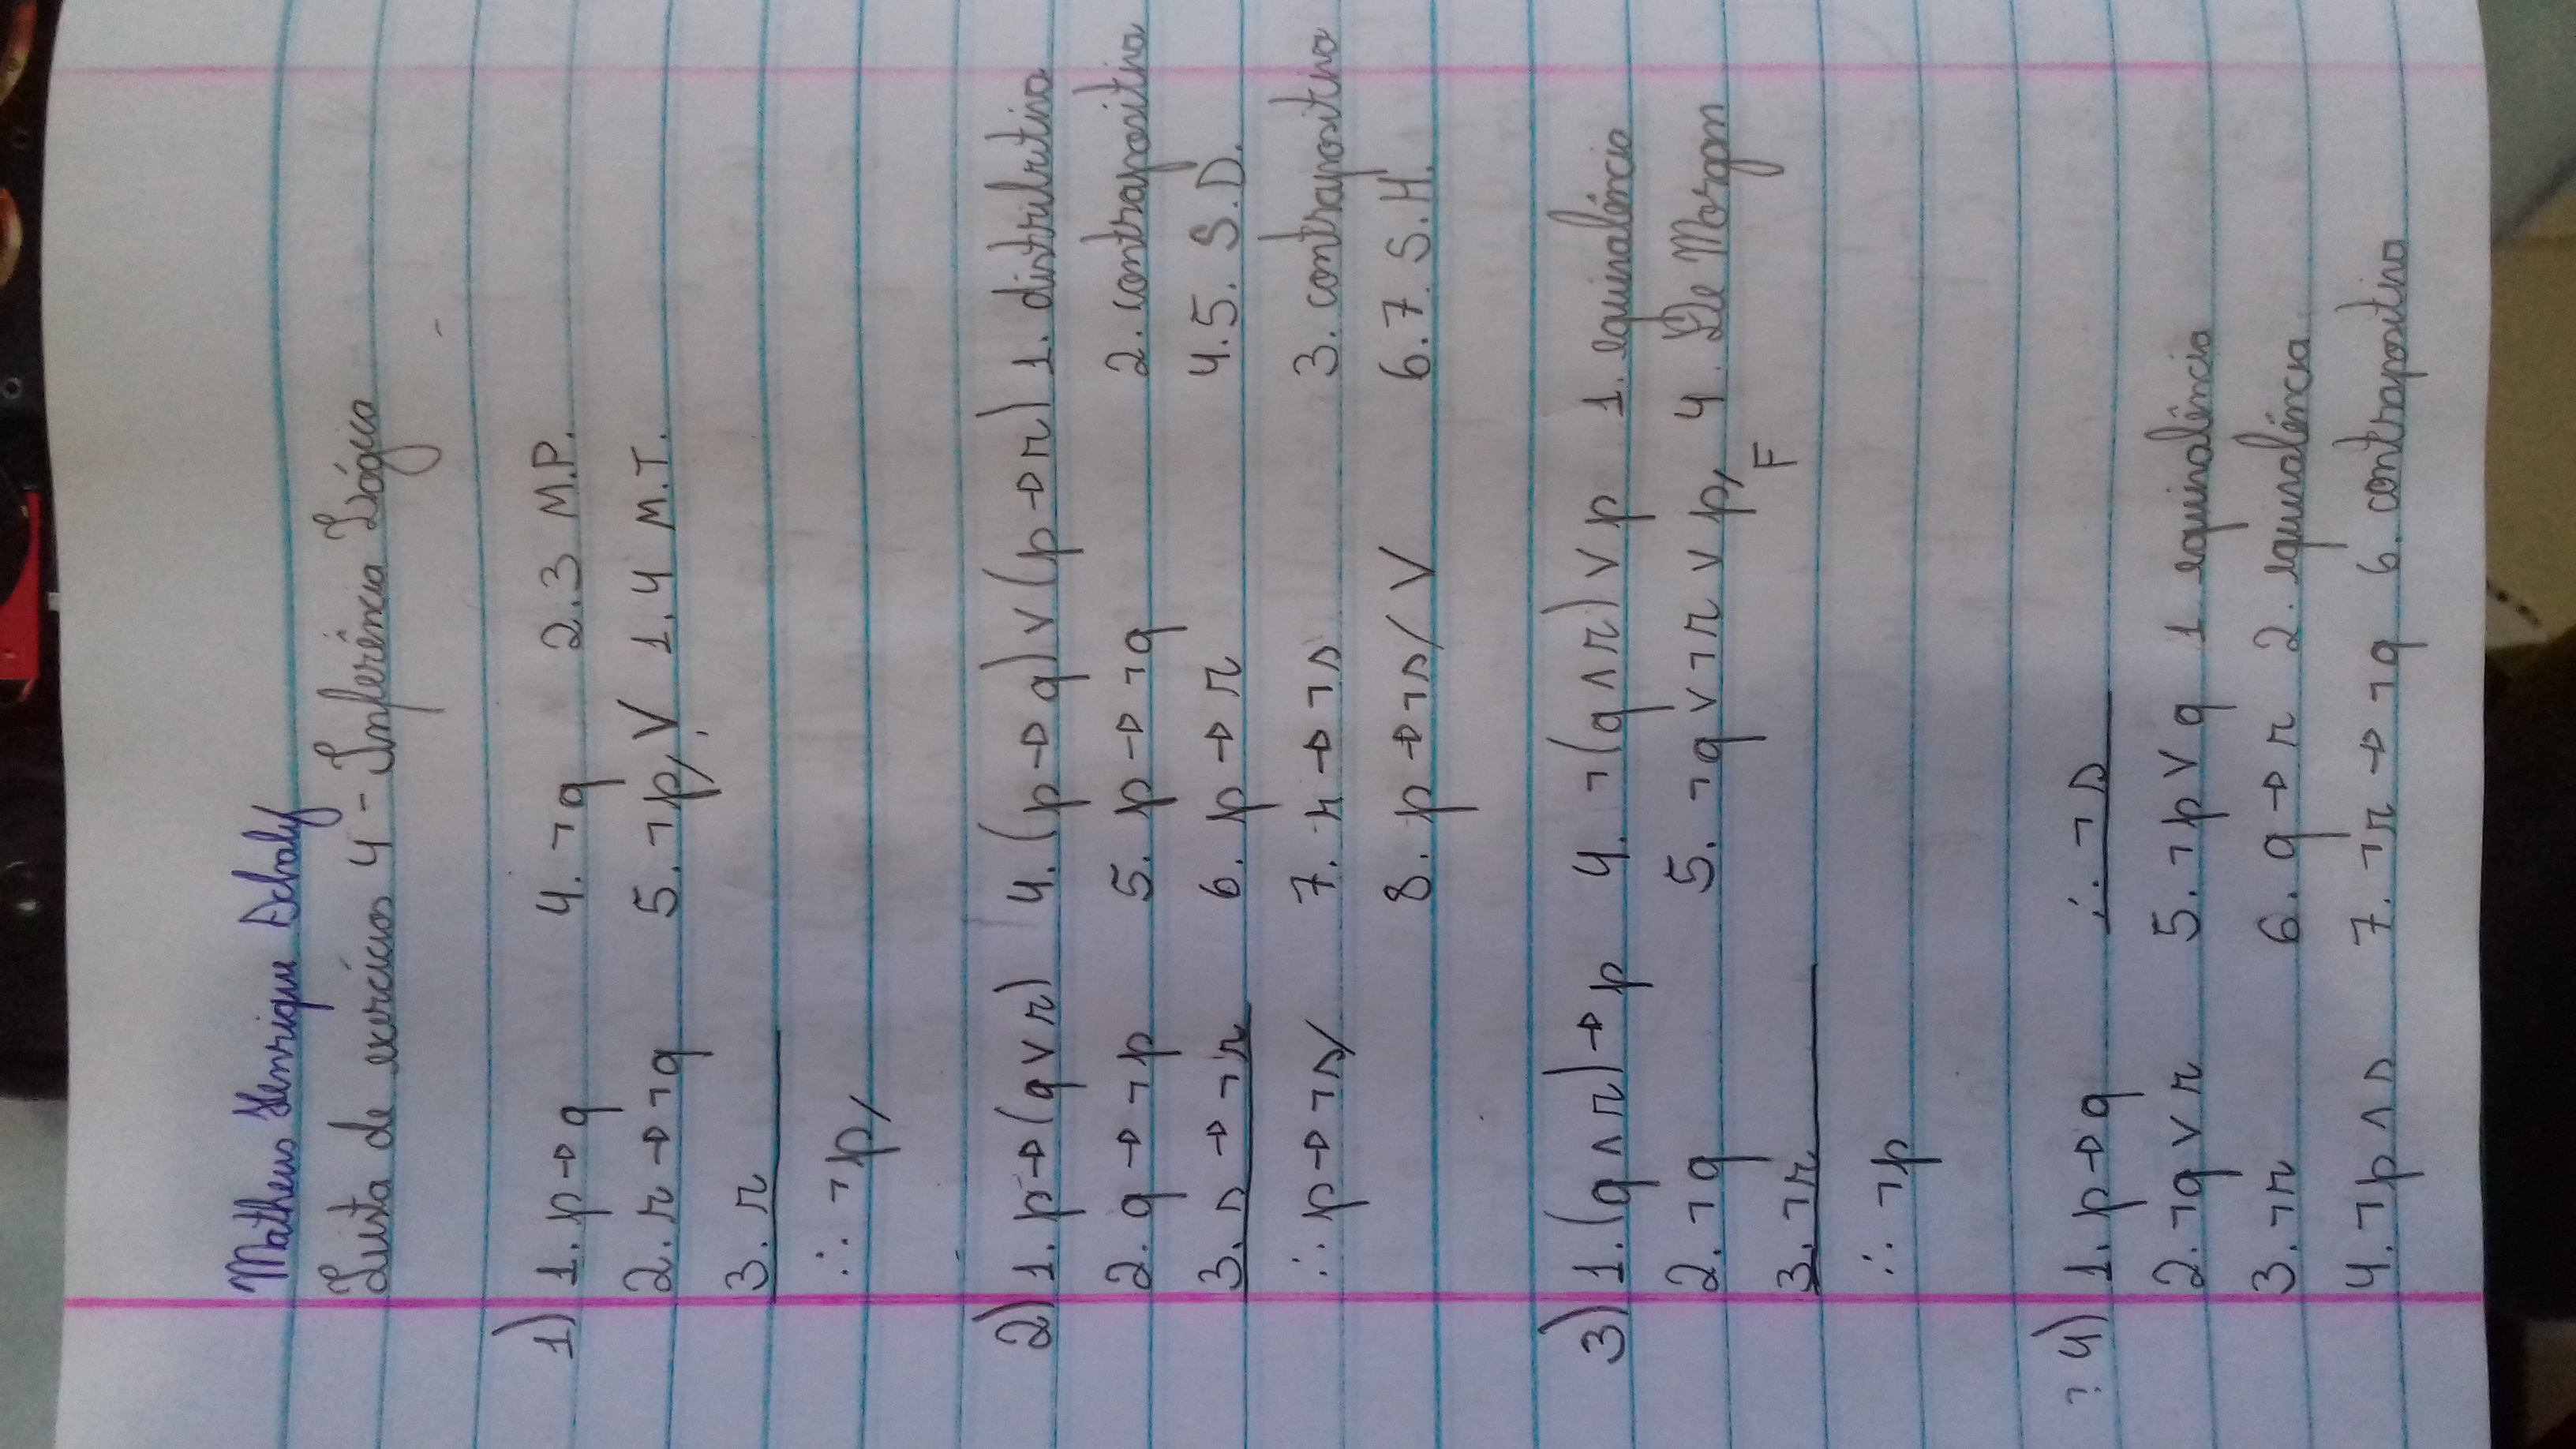 Matheus Henrique Schaly
Lista de exercícios 4 - Inferência Lógica
1) 1. p → q 4. ¬q 2.3 M.P.
2. r → ¬q 5. ¬p, V 1.4 M.T.
3. r
∴ ¬p,
2) 1. p → (q ∨ r) 4. (p → q) ∨ (p → r) 1. distributiva
2. q → ¬p 5. p → ¬q 2. contrapositiva
3. s → ¬r 6. p → r 4.5. S.D.
∴ p → ¬s/ 7. r → ¬s 3. contrapositiva
8. p → ¬s/ V 6.7. S.H.
3) 1. (q ∧ r) → p 4. ¬(q ∧ r) ∨ p 1. equivalência
2. ¬q 5. ¬q ∨ ¬r ∨ p, 4. De Morgan
F
3. ¬r
∴ ¬p
? 4) 1. p → q ∴ ¬s
2. ¬q ∨ r 5. ¬p ∨ q 1 equivalência
3. ¬r 6. q → r 2. equivalência
4. ¬p ∧ s 7. ¬r → ¬q 6. contrapositiva